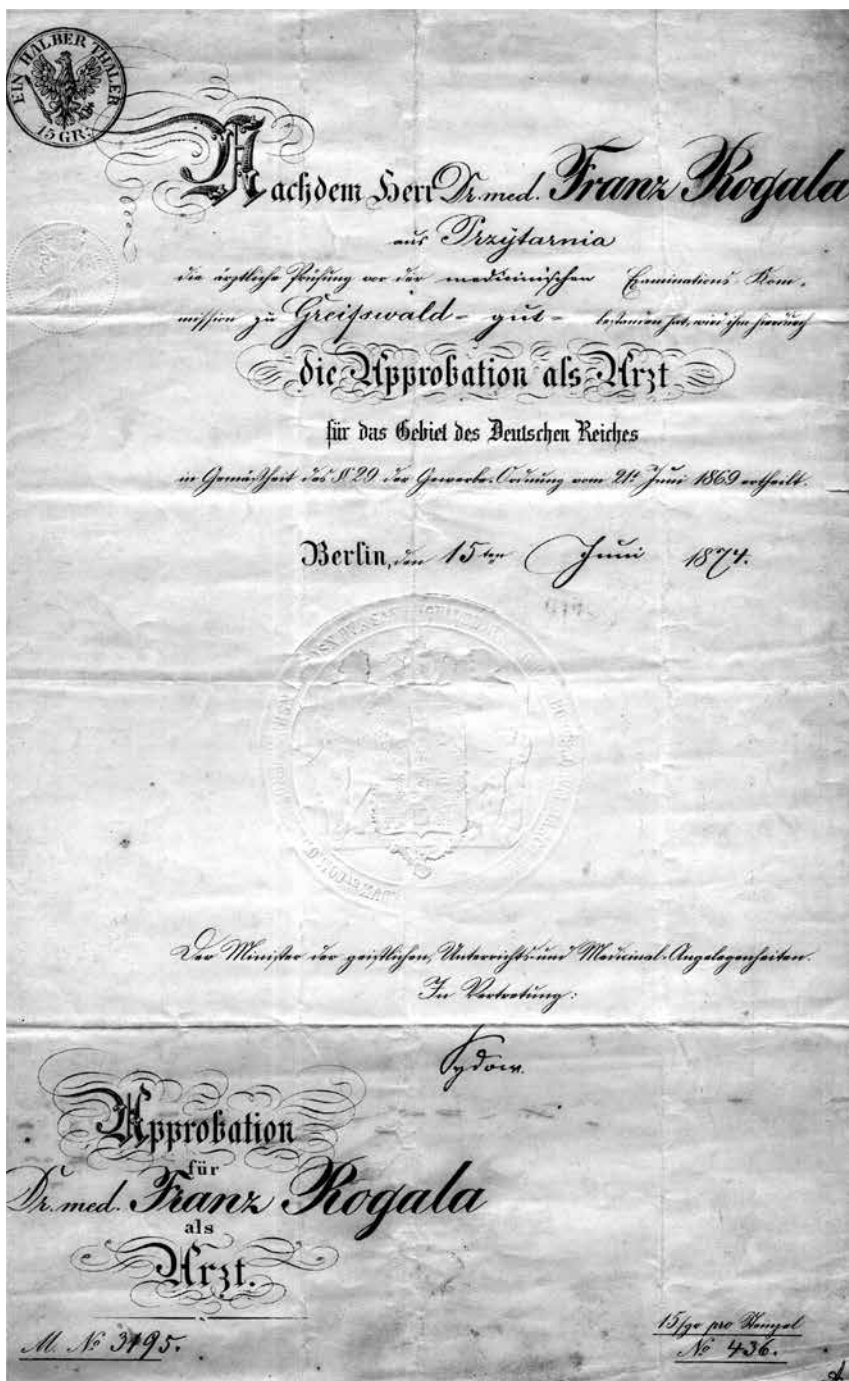 EIN HALBER THALER
15 GR:
Nachdem Herr Dr. med. Franz Rogala
aus Przytarnia
die ärztliche Prüfung vor der medicinischen Examinations-Kom-
mission zu Greifswald - gut - bestanden hat, wird ihm hierdurch
die Approbation als Arzt
für das Gebiet des Deutschen Reiches
in Gemäßheit des § 29 der Gewerbe-Ordnung vom 21t Juni 1869 ertheilt.
Berlin, den 15ten Juni 1874.
Der Minister der geistlichen, Unterrichts- und Medicinal-Angelegenheiten.
In Vertretung:
Sydow.
Approbation
für
Dr. med. Franz Rogala
als
Arzt.
M. No 3195.
15 sgr pro Stempel
No 436.